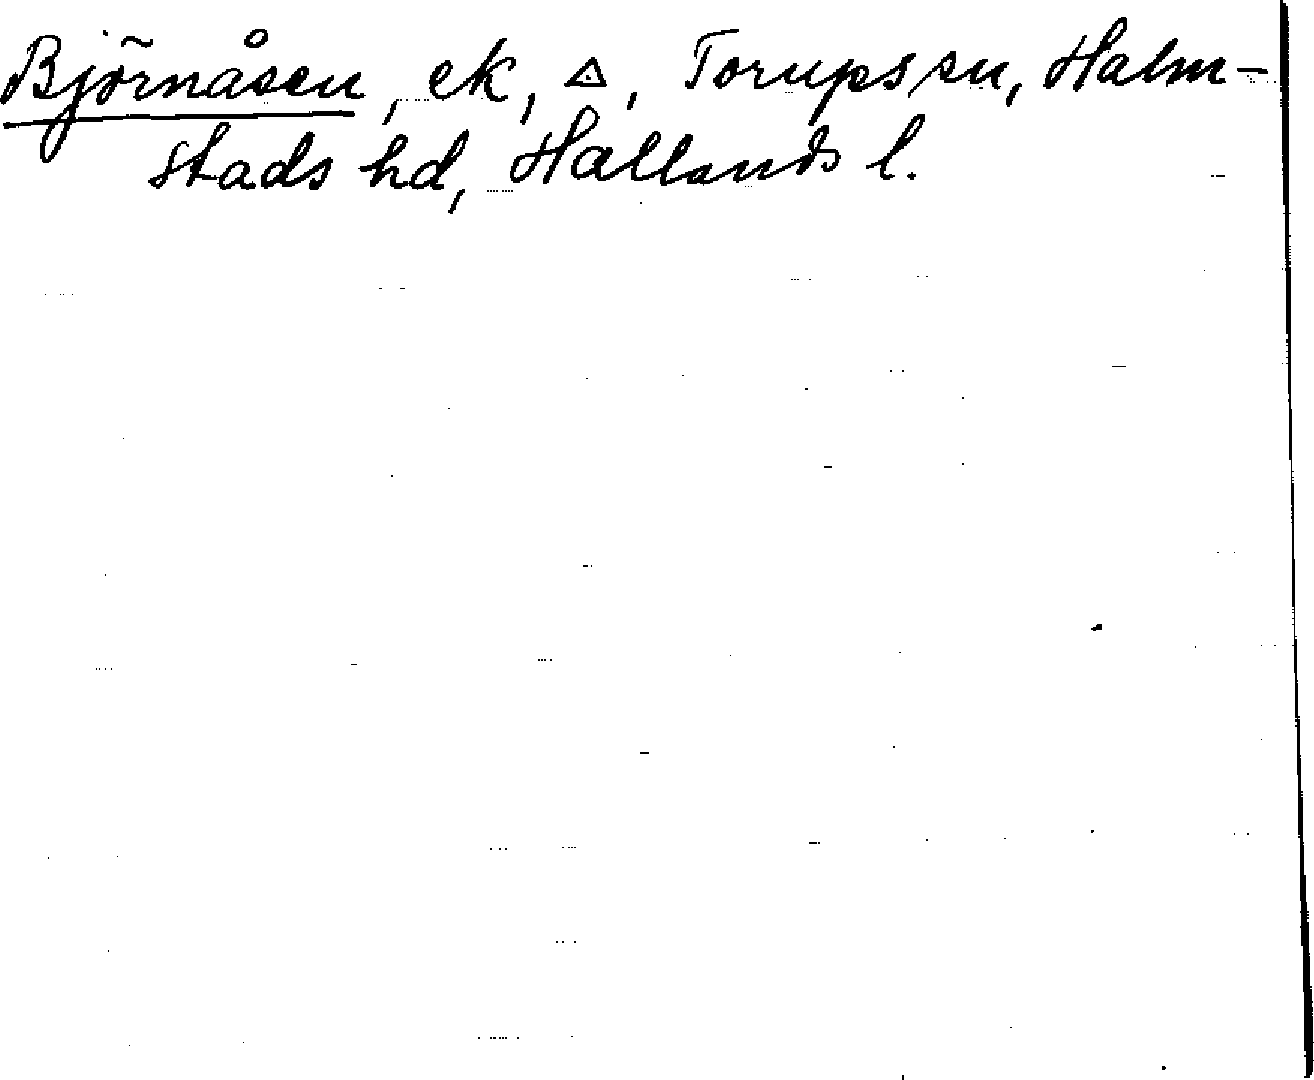 Björnåsen, ek, △, Torups sn, Halm-
stads hd, Hallands l.